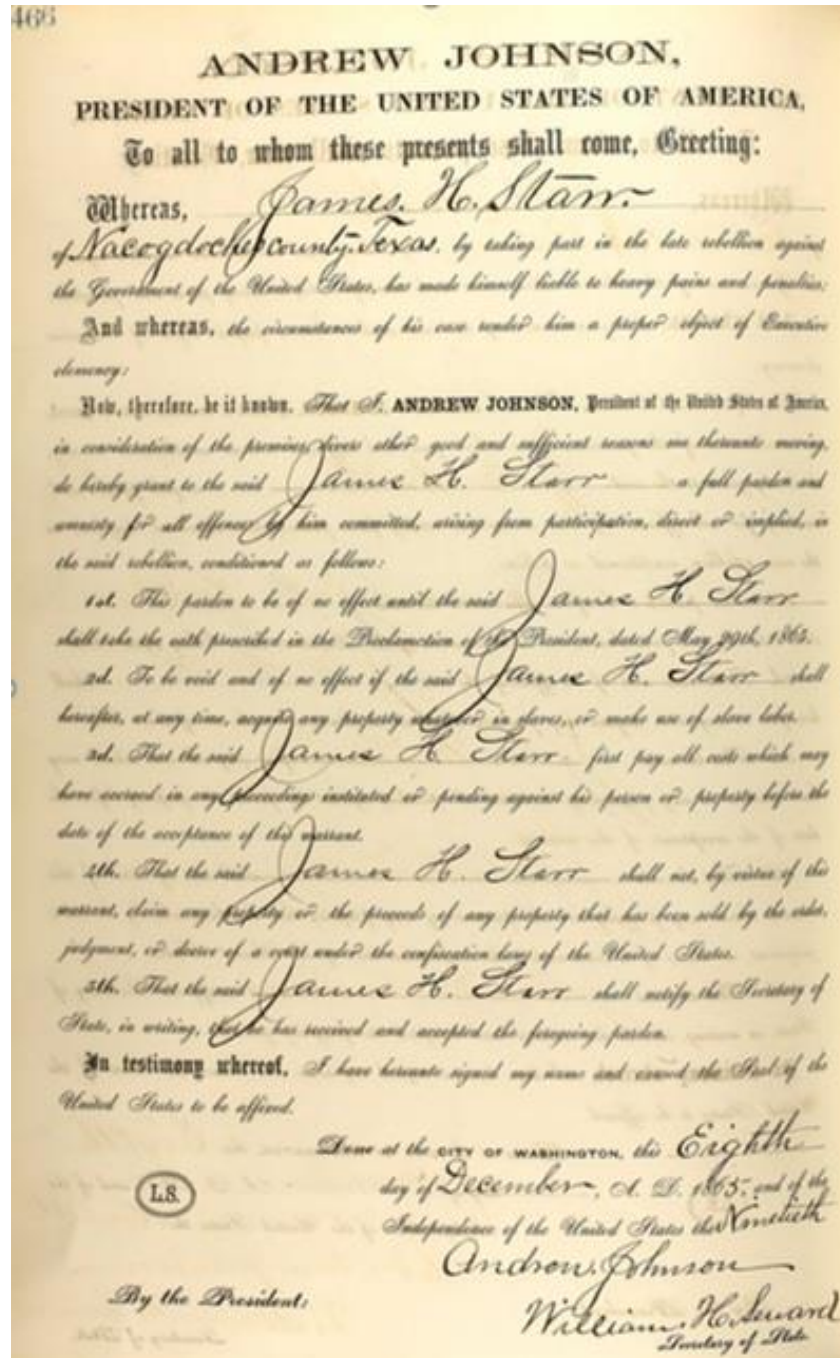 466
ANDREW JOHNSON,
PRESIDENT OF THE UNITED STATES OF AMERICA,
To all to whom these presents shall come, Greeting:
Whereas, James. H. Starr.
of Nacogdoches county. Texas, by taking part in the late rebellion against
the Government of the United States, has made himself liable to heavy pains and penalties;
And whereas, the circumstances of his case render him a proper object of Executive
clemency;
Now, therefore, be it known, That I, ANDREW JOHNSON, President of the United States of America,
in consideration of the premises, divers other good and sufficient reasons me thereunto moving,
do hereby grant to the said James H. Starr a full pardon and
amnesty for all offences by him committed, arising from participation, direct or implied, in
the said rebellion, conditioned as follows:
1st. This pardon to be of no effect until the said James H. Starr
shall take the oath prescribed in the Proclamation of the President, dated May 29th, 1865.
2d. To be void and of no effect if the said James H. Starr shall
hereafter, at any time, acquire any property whatever in slaves, or make use of slave labor.
3d. That the said James H Starr first pay all costs which may
have accrued in any proceeding instituted or pending against his person or property before the
date of the acceptance of this warrant.
4th. That the said James H. Starr shall not, by virtue of this
warrant, claim any property or the proceeds of any property that has been sold by the order,
judgment, or decree of a court under the confiscation laws of the United States.
5th. That the said James H. Starr shall notify the Secretary of
State, in writing, that he has received and accepted the foregoing pardon.
In testimony whereof, I have hereunto signed my name and caused the Seal of the
United States to be affixed.
Done at the CITY OF WASHINGTON, this Eighth
day of December, A. D. 1865, and of the
L.S.
Independence of the United States the Ninetieth
Andrew Johnson
By the President:
William. H. Seward
Secretary of State